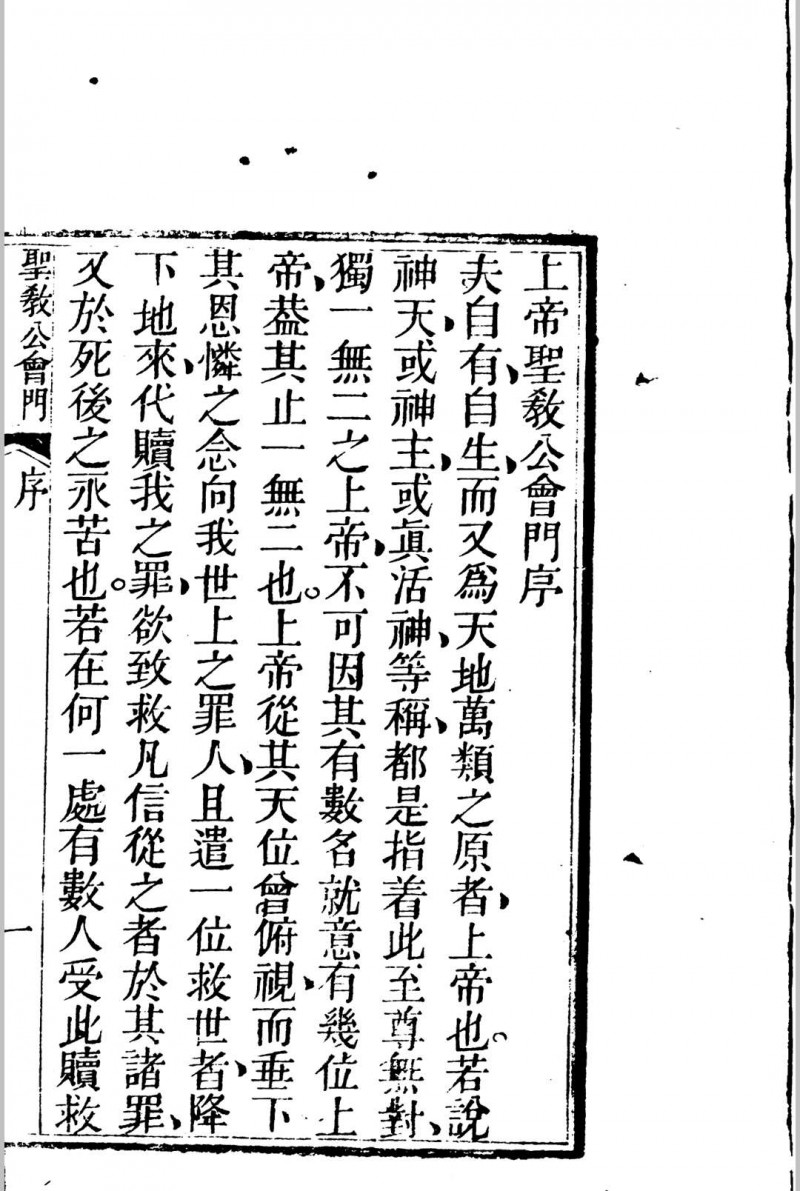 上帝聖敎公會門序
夫自有、自生、而又爲天地萬類之原者、上帝也。若說
神天、或神主、或眞活神、等稱、都是指着此至尊無對、
獨一無二之上帝、不可因其有數名就意有幾位上
帝、葢其止一無二也。上帝從其天位曾俯視、而垂下
其恩憐之念向我世上之罪人、且遣一位救世者、降
下地來、代贖我之罪、欲致救凡信從之者於其諸罪、
又於死後之永苦也。若在何一處有數人受此贖救
聖敎公會門 序 一